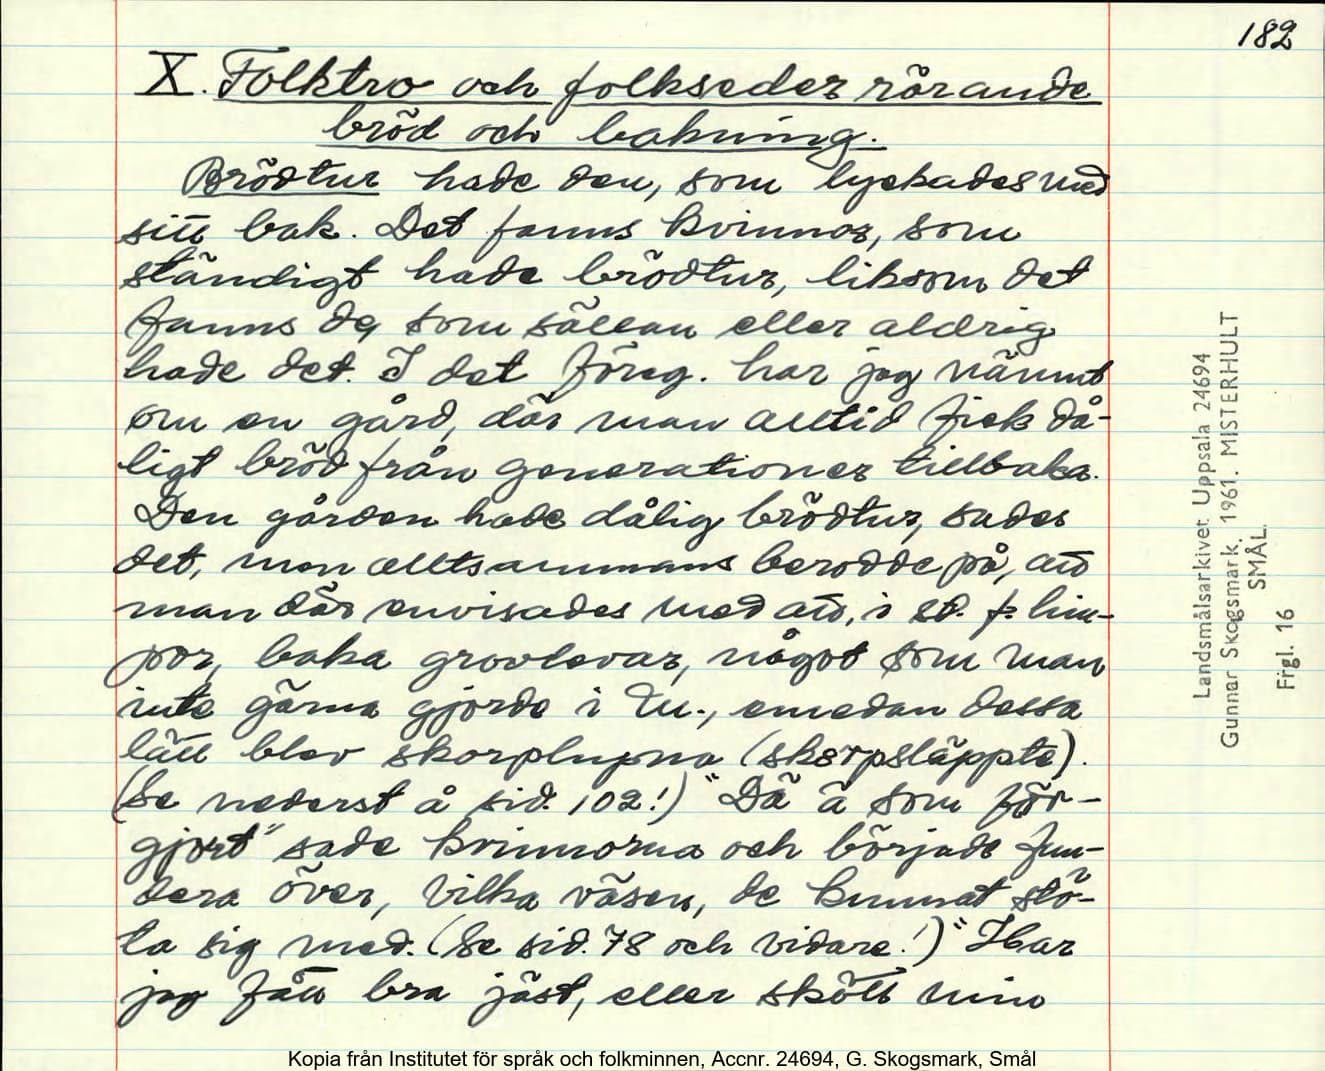 182
X. Folktro och folkseder rörande
bröd och bakning.
Brödtur hade den, som lyckades med
sitt bak. Det fanns kvinnor, som
ständigt hade brödtur, liksom det
fanns de, som sällan eller aldrig
hade det. I det föreg. har jag nämnt
om en gård, där man alltid fick då-
ligt bröd från generationer tillbaka.
Den gården hade dålig brödtur, sades
det, men alltsammans berodde på, att
man där envisades med att, i st. f. lim-
por, baka grovlevar, något som man
inte gärna gjorde i Tu., emedan dessa
lätt blev skorplupna (skorpsläppte).
(Se nederst å sid. 102!) "Dä ä som för-
gjort" sade kvinnorna och började fun-
dera över, vilka väsen, de kunnat stö-
ta sig med. (Se sid. 78 och vidare!) "Har
jag fått bra jäst, eller skött min
Landsmålsarkivet Uppsala 24694
Gunnar Skogsmark. 1961. MISTERHULT
SMÅL.
Frgl. 16
Kopia från Institutet för språk och folkminnen, Accnr. 24694, G. Skogsmark, Smål